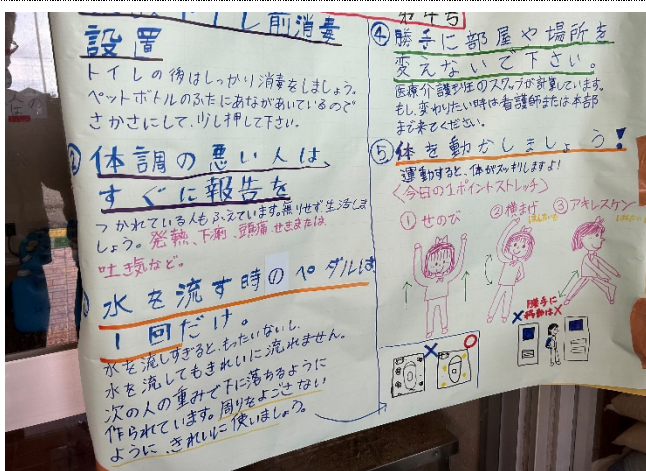 トイレ前消毒
設置
トイレの後はしっかり消毒をしましょう。
ペットボトルのふたにあながあいているので
さかさにして、少し押して下さい。
② 体調の悪い人は、
すぐに報告を
つかれている人もふえています。無りせず生活しま
しょう。発熱、下痢、頭痛、せきまたは
吐き気など。
水を流す時のペダルは
1回だけ。
水を流しすぎると、もったいないし、
水を流してもきれいに流れません。
次の人の重みで下に落ちるように
作られています。周りをよごさない
ように、きれいに使いましょう。
④ 勝手に部屋や場所を
変えないで下さい。
医療介護班のスタッフが計算しています。
もし、変わりたい時は看護師または本部
まで来てください。
⑤ 体を動かしましょう!
運動すると、体がスッキリしますよ!
〈今日の1ポイントストレッチ〉
① せのび
② 横まげ
③ アキレスケン
勝手に
移動は×